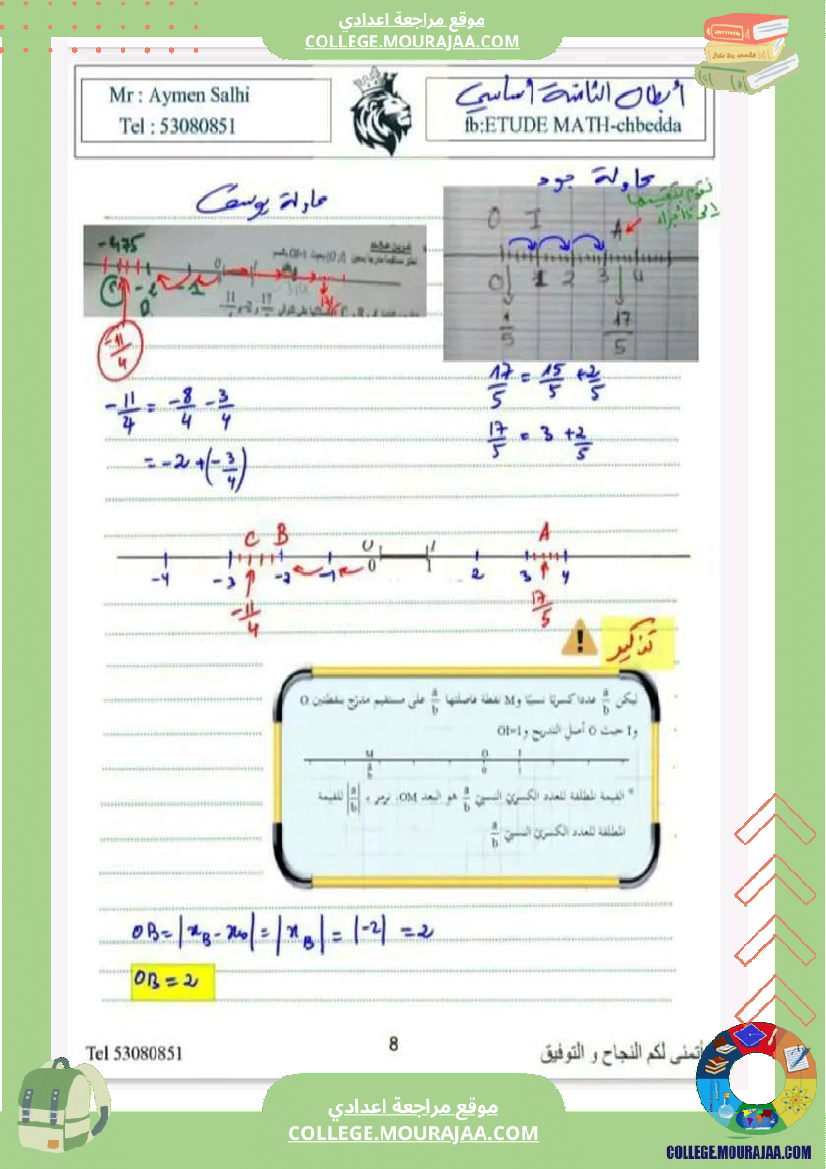 موقع مراجعة اعدادي
COLLEGE.MOURAJAA.COM
Mr : Aymen Salhi
Tel : 53080851
أبطال الثامنة أساسي
fb:ETUDE MATH-chbedda
محاولة جود
محاولة يوسف
نقوم بتقسيمها
إلى 5 أجزاء
O I A
0 1 2 3 4
1/5 17/5
-475
-2 -1 0
B
-11/4
17/5
17/5 = 15/5 + 2/5
17/5 = 3 + 2/5
-11/4 = -8/4 - 3/4
= -2 + (-3/4)
C B O I A
-4 -3 -2 -1 0 1 2 3 4
-11/4 17/5
تذكير
ليكن a/b عددا كسريّا نسبيّا و M نقطة فاصلتها a/b على مستقيم مدرّج بنقطتين O
و I حيث O أصل التدريج و OI=1
M O I
a/b 0 1
* القيمة المطلقة للعدد الكسريّ النسبيّ a/b هو البعد OM. نرمز بـ |a/b| للقيمة
المطلقة للعدد الكسريّ النسبيّ a/b
OB = |x_B - x_O| = |x_B| = |-2| = 2
OB = 2
Tel 53080851
8
أتمنى لكم النجاح و التوفيق
موقع مراجعة اعدادي
COLLEGE.MOURAJAA.COM
COLLEGE.MOURAJAA.COM